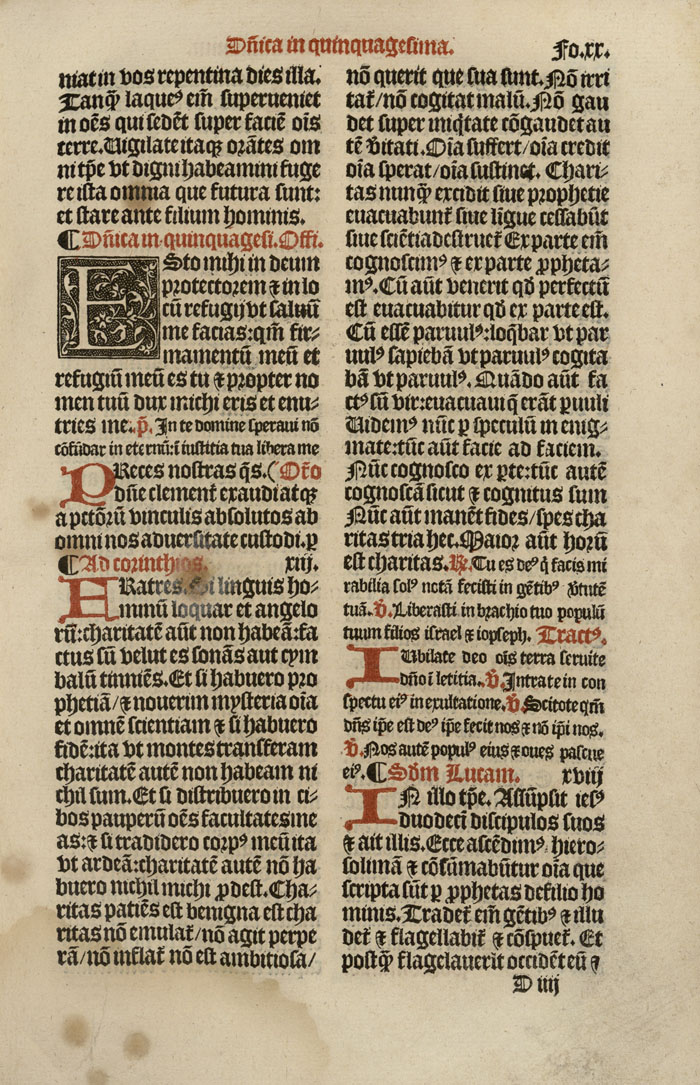 Dñica in quinquagesima.
Fo.xx.
niat in vos repentina dies illa.
Tanq̃ laqueꝰ em̃ superueniet
in oẽs qui sedẽt super faciẽ oĩs
terre. Uigilate itaqꝫ orãtes om
ni tp̃e vt digni habeamini fuge
re ista omnia que futura sunt:
et stare ante filium hominis.
¶ Dñica in quinquagesi. Offi.
ESto mihi in deum
protectorem ⁊ in lo
cũ refugij vt saluũ
me facias: qm̃ fir⸗
mamentũ meũ et
refugiũ meũ es tu ⁊ ꝓpter no
men tuũ dux michi eris et enu⸗
tries me. p̃. In te domine speraui nõ
cõfũdar in eternũ: ĩ iustitia tua libera me
PReces nostras q̃s. (Orõ
dñe clementer̃ exaudi atqꝫ
a pctõrũ vinculis absolutos ab
omni nos aduersitate custodi. ꝑ
¶ Ad corinthios. xiij.
FRatres. Si linguis ho⸗
minũ loquar et angelo
rũ: charitatẽ aũt non habeã: fa
ctus sũ velut es sonãs aut cym
balũ tinniẽs. Et si habuero pro
phetiã/ ⁊ nouerim mysteria oĩa
et omnẽ scientiam ⁊ si habuero
fidẽ: ita vt montes transferam
charitatẽ autẽ non habeam ni
chil sum. Et si distribuero in ci⸗
bos pauperũ oẽs facultates me
as: ⁊ si tradidero corpꝰ meũ ita
vt ardeã: charitatẽ autẽ nõ ha
buero nichil michi ꝓdest. Cha⸗
ritas patiẽs est benigna est cha
ritas nõ emulat̃/ nõ agit perpe
rã/ nõ inflat̃ nõ est ambitiosa/
nõ querit que sua sunt. Nõ irri
tat̃/ nõ cogitat malũ. Nõ gau
det super iniq̃tate cõgaudet au
tẽ v̾itati. Oĩa suffert/ oĩa credit
oĩa sperat/ oĩa sustinet. Chari⸗
tas nunq̃ excidit siue prophetie
euacuabunt̃ siue lĩgue cessabũt
siue sciẽtia destruet̃ Ex parte em̃
cognoscimꝰ ⁊ ex parte ꝓpheta⸗
mꝰ. Cũ aũt venerit qd̃ perfectũ
est euacuabitur qd̃ ex parte est.
Cũ essẽ paruulꝰ: loq̃bar vt par
uulꝰ sapiebã vt paruulꝰ cogita
bã vt paruulꝰ. Quãdo aũt fa
ctꝰ sũ vir: euacuaui q̃ erãt ꝑuuli
Uidemꝰ nũc ꝑ speculũ in enig⸗
mate: tũc aũt facie ad faciem.
Nũc cognosco ex ꝑte: tũc autẽ
cognoscã sicut ⁊ cognitus sum
Nũc aũt manẽt fides/ spes cha
ritas tria hec. Maior aũt horũ
est charitas. ℞. Tu es deꝰ q̃ facis mi
rabilia solꝰ notã fecisti in gẽtibꝰ v̾tutẽ
tuã. ℣. Liberasti in brachio tuo populũ
tuum filios israel ⁊ iopseph. Tractꝰ.
IUbilate deo oĩs terra seruite
dño ĩ letitia. ℣. Intrate in con
spectu eiꝰ in exultatione. ℣. Scitote qm̃
dñs ip̃e est deꝰ ip̃e fecit nos ⁊ nõ ip̃i nos.
℣. Nos autẽ populꝰ eius ⁊ oues pascue
eiꝰ. ¶ Scd̃m Lucam. xviij
IN illo tp̃e. Assũpsit iesꝰ
duodecĩ discipulos suos
⁊ ait illis. Ecce ascẽdimꝰ hiero⸗
solimã ⁊ cõsũmabũtur oĩa que
scripta sũt ꝑ ꝓphetas de filio ho
minis. Tradet̃ em̃ gẽtibꝰ ⁊ illu
det̃ ⁊ flagellabit̃ ⁊ cõspuet̃. Et
postq̃ flagelauerĩt occidẽt eũ ⁊
D iiij